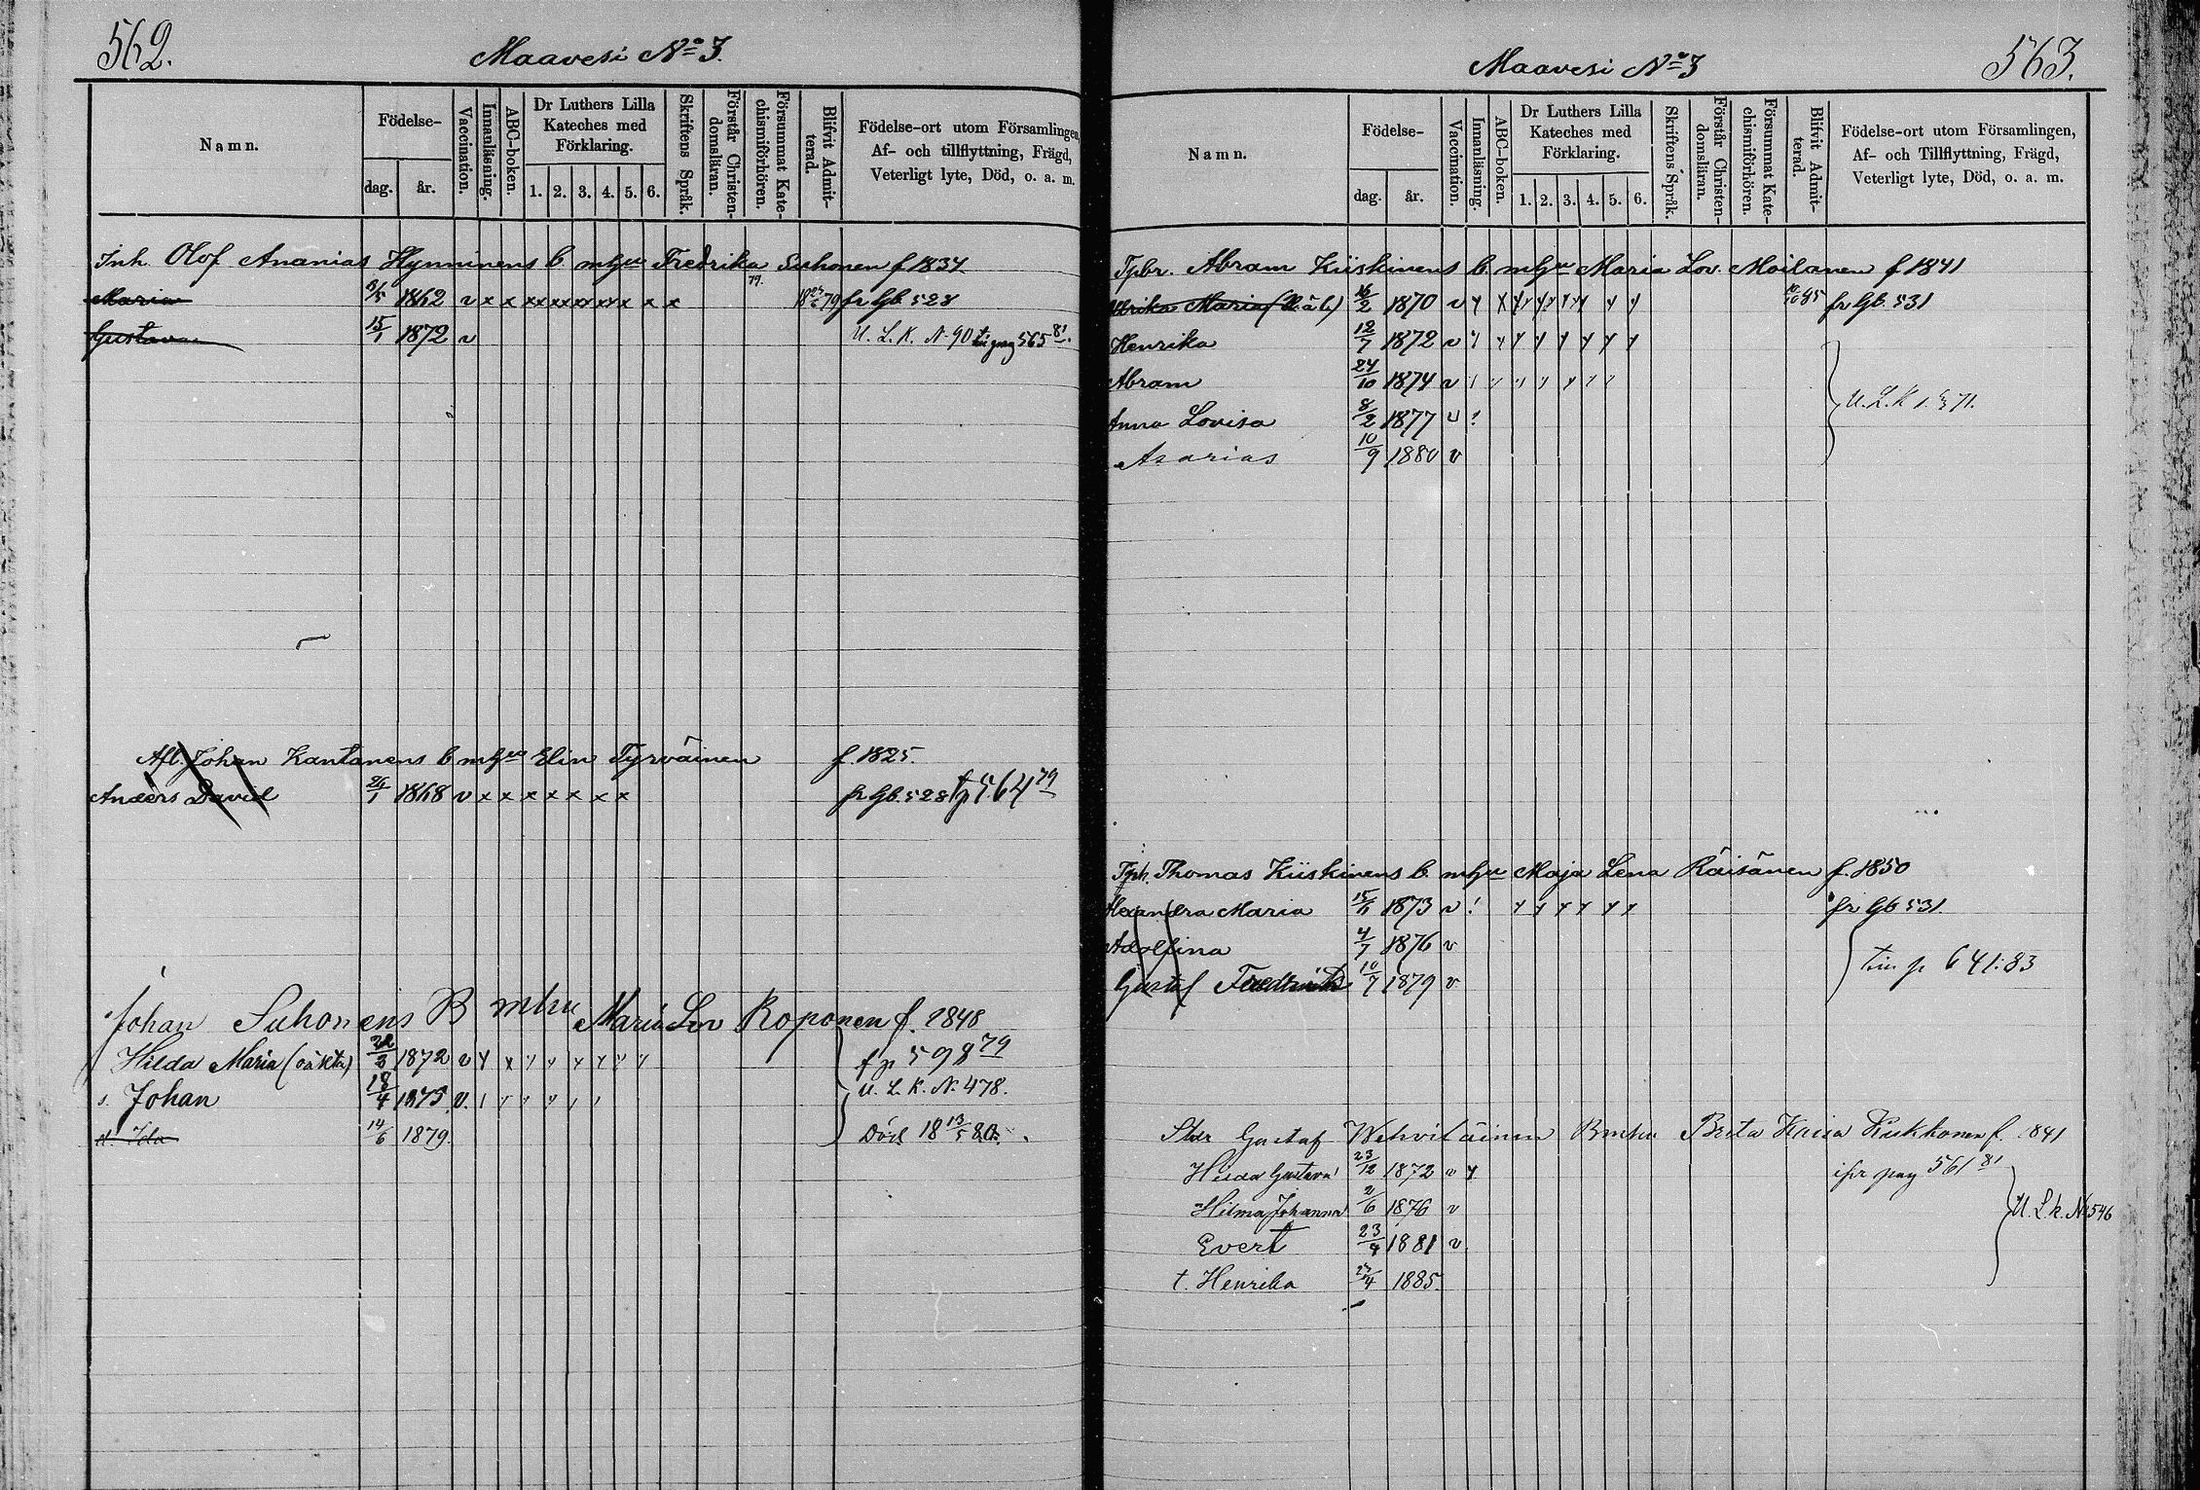 562.
Maavesi No 3.
Namn.
Födelse-
dag.
år.
Vaccination.
Innanläsning.
ABC-boken.
Dr Luthers Lilla
Kateches med
Förklaring.
1. 2. 3. 4. 5. 6.
Skriftens Språk.
Förstår Christen-
domsläran.
Försummat Kate-
chismiförhören.
Blifvit Admit-
terad.
Födelse-ort utom Församlingen,
Af- och tillflyttning, Frägd,
Veterligt lyte, Död, o. a. m.
Inh. Olof Ananias Hynninens b. mhu Fredrika Suhonen f 1834
Maria 1862 v x x xx xx xx xx x x x 79 fr Gb. 528
Gustava 15/1 1872 v U. L. K. N. 90 till pag 565 81.
Afl. Johan Kantanens b mhu Elin Tyrväinen f. 1825.
Anders David 26/1 1868 v x x x x x x x fr Gb. 528 tp 564 79
Johan Suhonens B mhu Maria Lov Roponen f. 1848
Hilda Maria 1872 v fp 598 79
s. Johan 18/4 1875 v. U. L. K. N. 478.
d. Ida 14/6 1879. Död 18 13/5 80.
563.
Maavesi No 3
Namn.
Födelse-
dag.
år.
Vaccination.
Innanläsning.
ABC-boken.
Dr Luthers Lilla
Kateches med
Förklaring.
1. 2. 3. 4. 5. 6.
Skriftens Språk.
Förstår Christen-
domsläran.
Försummat Kate-
chismiförhören.
Blifvit Admit-
terad.
Födelse-ort utom Församlingen,
Af- och Tillflyttning, Frägd,
Veterligt lyte, Död, o. a. m.
Tpbr. Abram Kiiskinens b mhu Maria Lov. Moilanen f 1841
Ulrika Maria 16/2 1870 v 85 fr Gb. 531
Henrika 12/7 1872 v
Abram 24/10 1874 v
Anna Lovisa 8/2 1877 v ! U. L. K
Asarias 10/9 1880 v
Tph. Thomas Kiiskinens b mhu Maja Lena Räisänen f. 1850
Alexandra Maria 1873 v ! fr Gb 531.
Adolfina 4/7 1876 v
Gustaf Fredrik 10/7 1879 v till p 641: 83
Gustaf Wehviläinen Bmhu Brita Kaisa Kukkonen f. 1841
Hilda Gustava 23/12 1872 v ifr pag 561 81
Hilma Johanna 2/6 1876 v U. L. k. No 546
Evert 23/4 1881 v
t. Henrika 27/4 1885.